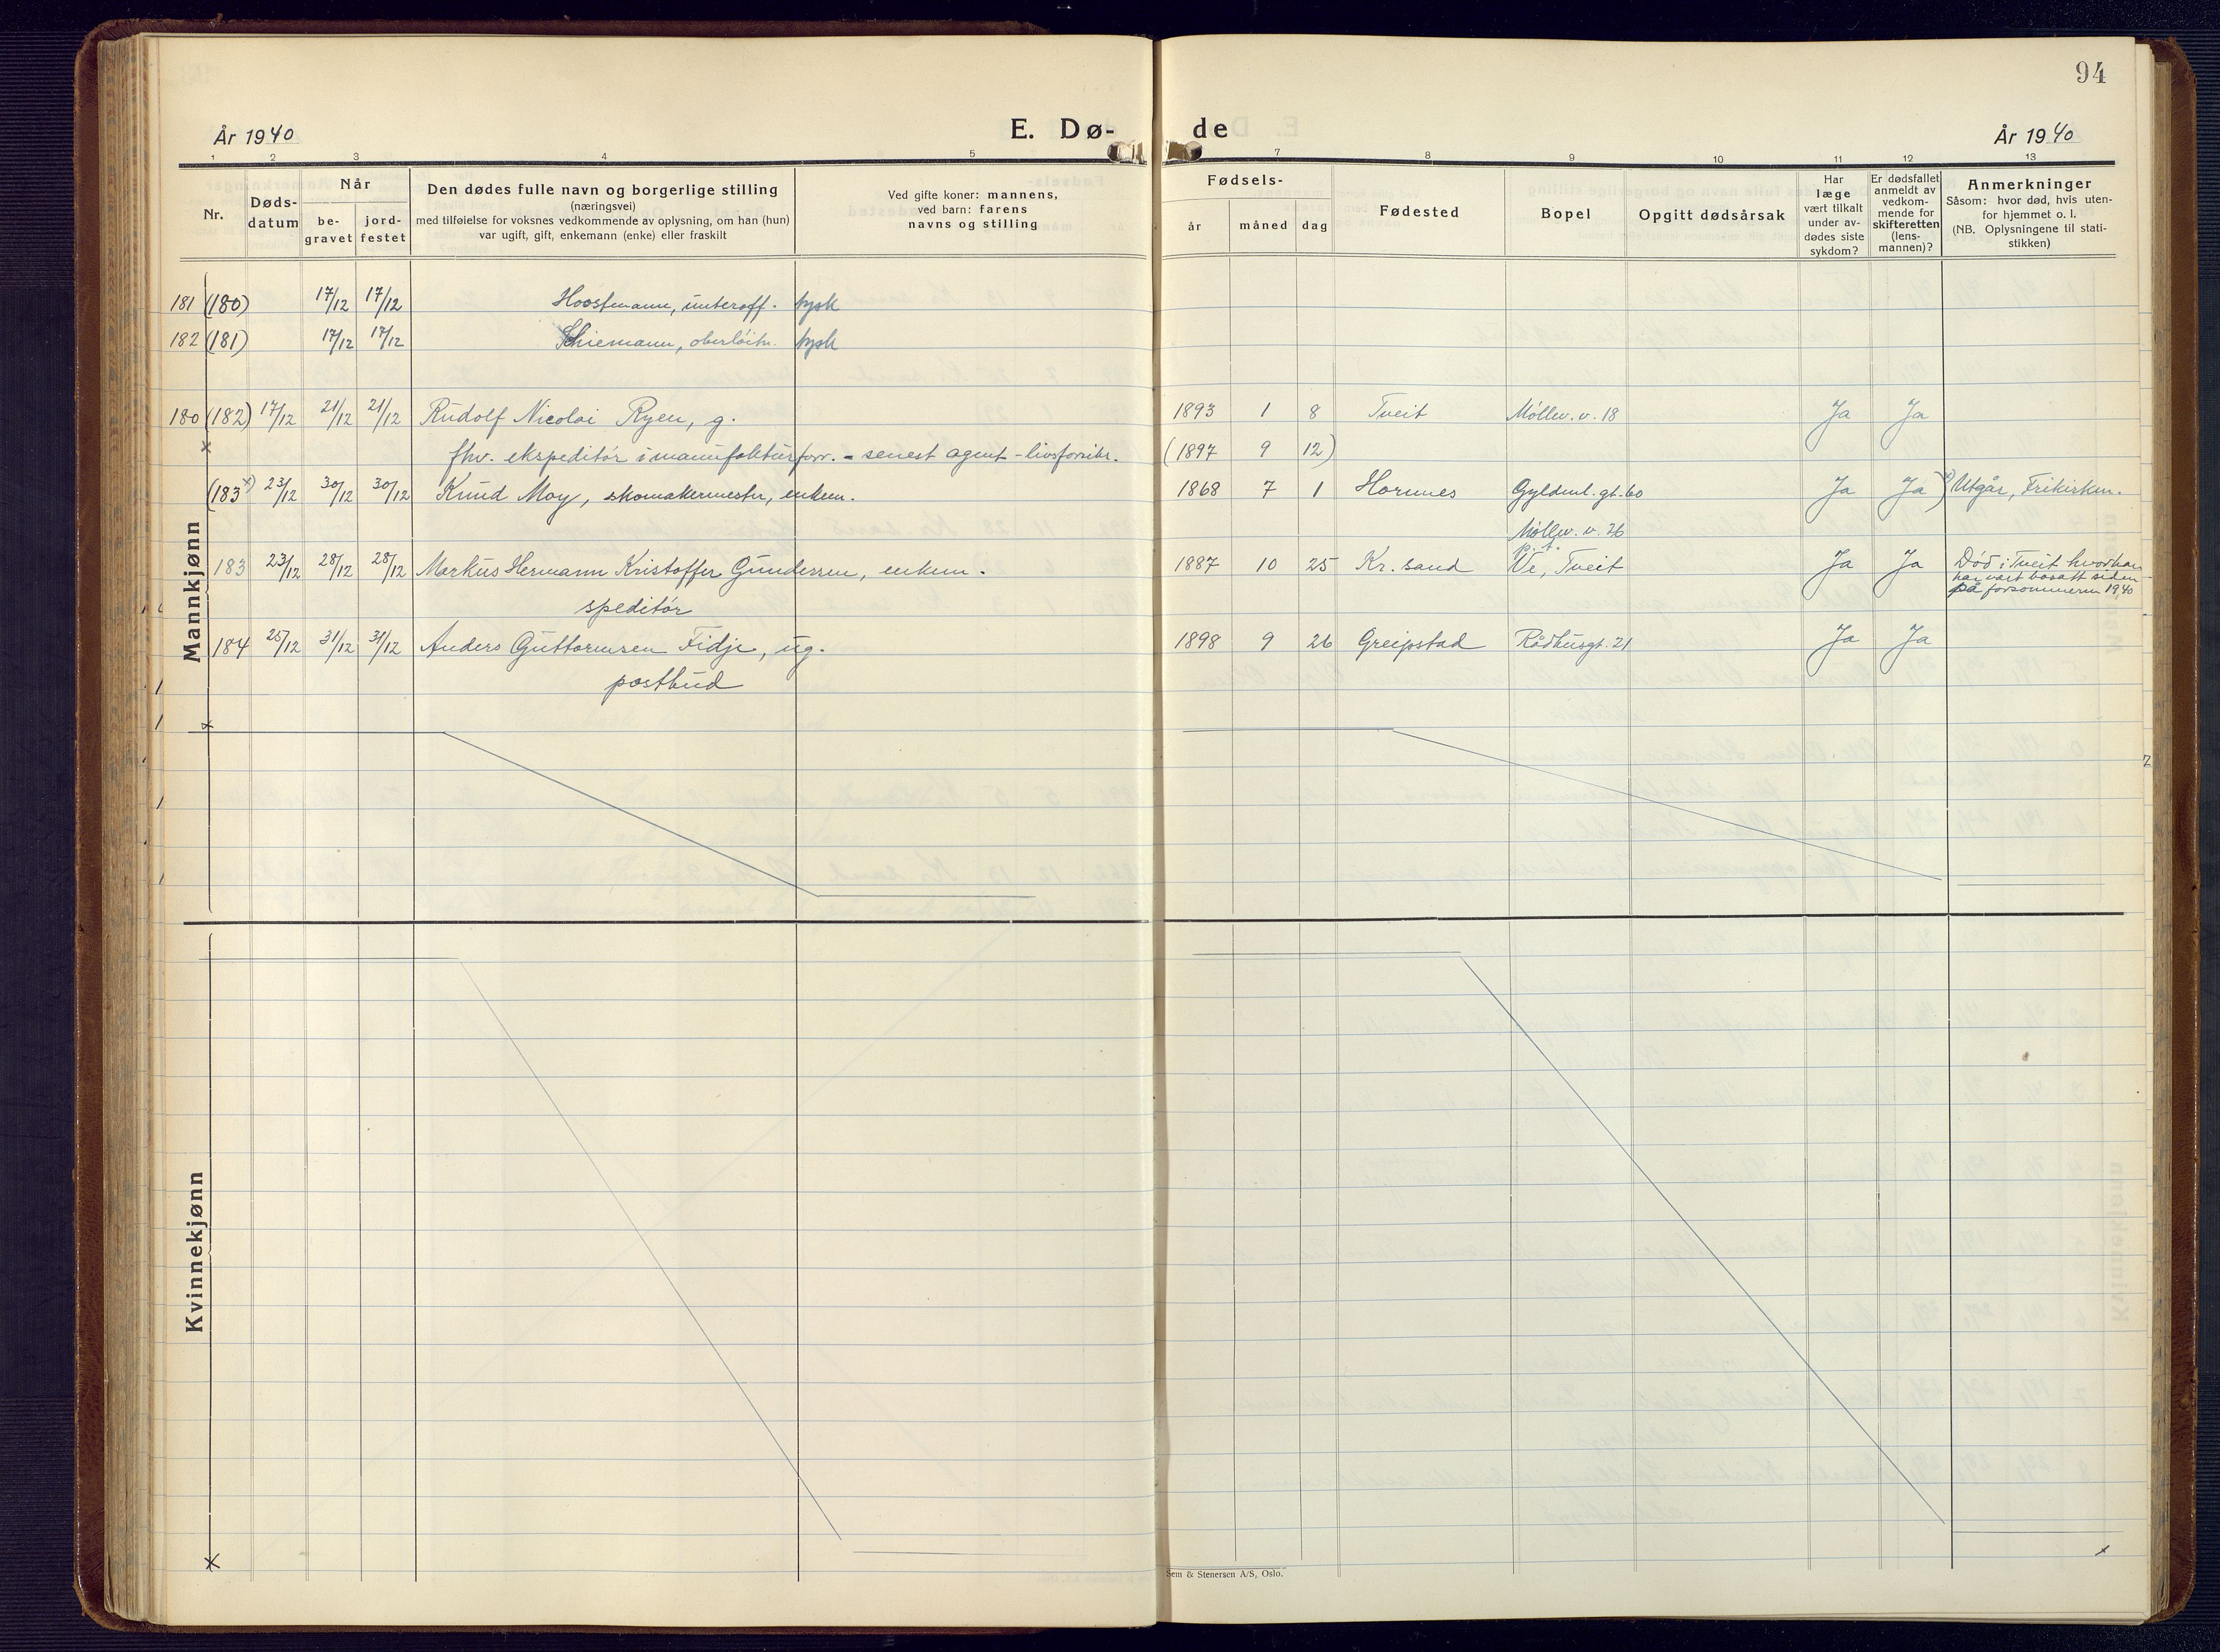 94
År 1940
E. Dø-
de
År 1940
1 2 3 4 5 7 8 9 10 11 12 13
Nr.
Døds-
datum
Når
be-
gravet
jord-
festet
Den dødes fulle navn og borgerlige stilling
(næringsvei)
med tilføielse for voksnes vedkommende av oplysning, om han (hun)
var ugift, gift, enkemann (enke) eller fraskilt
Ved gifte koner: mannens,
ved barn: farens
navns og stilling
Fødsels-
år
måned
dag
Fødested
Bopel
Opgitt dødsårsak
Har
læge
vært tilkalt
under av-
dødes siste
sykdom?
Er dødsfallet
anmeldt av
vedkom-
mende for
skifteretten
(lens-
mannen)?
Anmerkninger
Såsom: hvor død, hvis uten-
for hjemmet o. l.
(NB. Oplysningene til stati-
stikken)
181 (180) 17/12 17/12 Hoostmann, unteroff. tysk
182 (181) 17/12 17/12 Schiemann, oberløitn. tysk
180 (182) 17/12 21/12 21/12 Rudolf Nicolai Ryen, g. 1893 1 8 Tveit Møllev. v. 18 Ja Ja
x fhv. ekspeditör i manufakturforr. - senest agent - livsforsikr. (1897 9 12)
(183x) 23/12 30/12 30/12 Knud Moy, skomakermester, enkem. 1868 7 1 Hornnes Gyldenl. gt. 60 Ja Ja x) Utgår, Frikirken.
Møllev. v. 26
p. t.
183 23/12 28/12 28/12 Markus Hermann Kristoffer Gundersen, enkem. 1887 10 25 Kr. sand Ve, Tveit Ja Ja Död i Tveit hvor han
har vært bosatt siden
på forsommeren 1940
speditör
184 25/12 31/12 31/12 Anders Guttormsen Fidje, ug. 1898 9 26 Greipstad Rådhusgt. 21 Ja Ja
postbud
Mannkjønn
Kvinnekjønn
Sem & Stenersen A/S, Oslo.